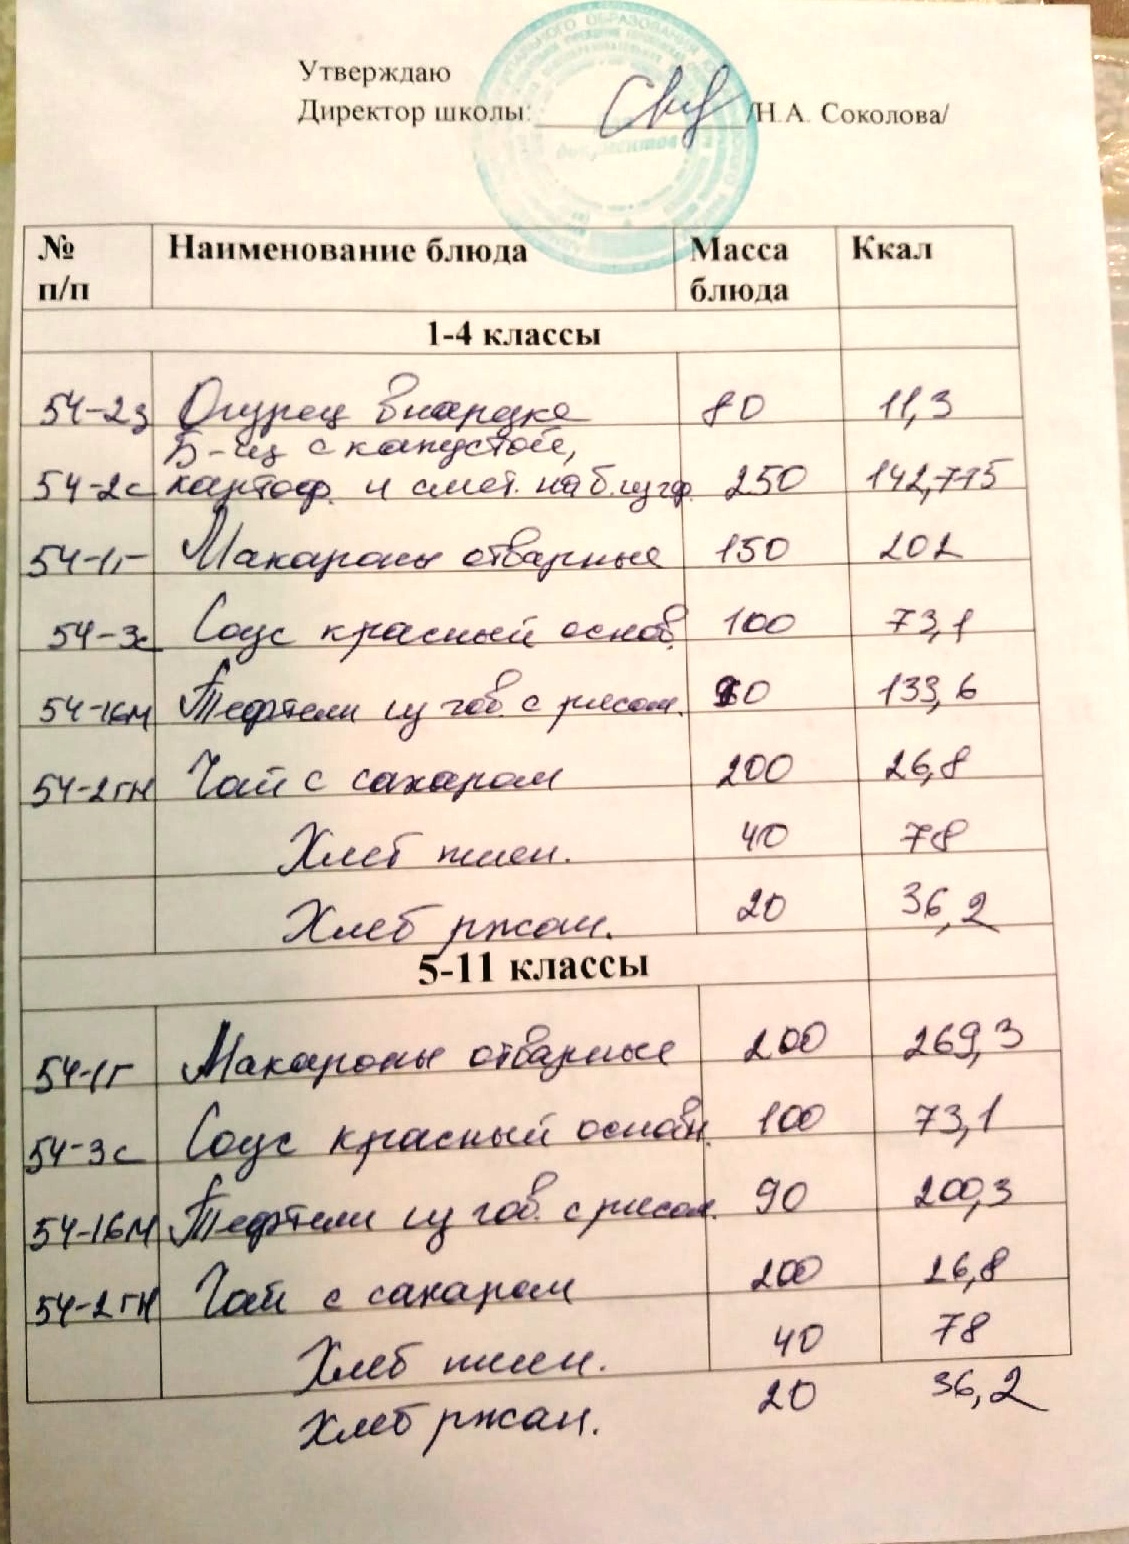 Утверждаю
Директор школы: /Н.А. Соколова/
документов
№ п/п Наименование блюда Масса блюда Ккал
1-4 классы
54-2з Огурец в нарезке 80 11,3
Б-щ с капустой,
54-2с картоф. и смет. на б. 250 142,775
54-1г Макароны отварные 150 202
54-3с Соус красный основ. 100 73,1
54-16м Тефтели из гов. с рисом. 60 133,6
54-2гн Чай с сахаром 200 26,8
Хлеб пшен. 40 78
Хлеб ржан. 20 36,2
5-11 классы
54-1г Макароны отварные 200 269,3
54-3с Соус красный основн. 100 73,1
54-16м Тефтели из гов. с рисом. 90 200,3
54-2гн Чай с сахаром 200 26,8
Хлеб пшен. 40 78
Хлеб ржан. 20 36,2